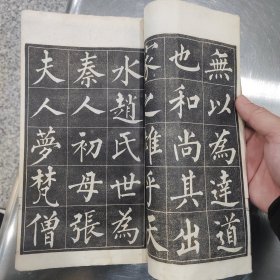 無以為達道
也和尚其出
家之雄乎天
水趙氏世為
秦人初母張
夫人夢梵僧